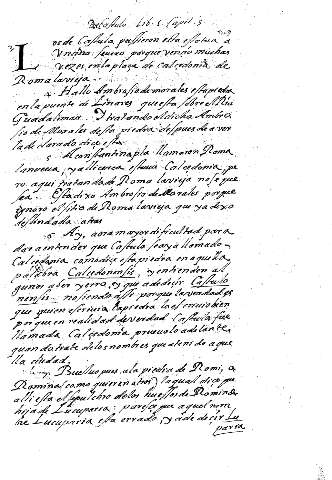 De Castulo Lib. 1. Capit. 5
Los de Castula pusieron esta estatua a
seuero porque vencio muchas
vezes en la plaça de calcedonia de
Roma la vieja.
2. Hallo Ambrosio de morales esta piedra
en la puente de Linares questa sobre el Rio
Guadalimar. I tratando el dicho Ambro
sio de Morales desta piedra, despues de aver
la declarado dice esto.
3. A constantinopla llamaron Roma
la nueua, y alli cerca estuuo Calcedonia, pe
ro, aqui tratando de Roma la vieja no se que
sea. Esto dixo Ambrosio de Morales porque
ignoro el sitio de Roma la vieja, que ya dexo
deslindado atras
Ay, aora mayor dificultad para
dar a entender que Castulo se aya llamado
Calcedonia como dice esta piedra en aquella
palabra Calcedonensis, y entienden al
gunos aber yerro, y que a de decir Castulo
nensis no siendo assi porque la verdad es
que quien escriuio la piedra lo escriuio bien
porque en realidad de verdad Castula fue
llamada Calcedonia prueuolo adelante
quando trate de los nombres que a tenido aque
lla ciudad.
Bueluo pues a la piedra de Romi, o
Romina (como quieren otros) la qual dice que
alli esta el sepulchro de los huessos de Romina
hija de Lucuparia: parece que aquel nom
bre Lucuparia esta errado, y a de decir Lu
paria